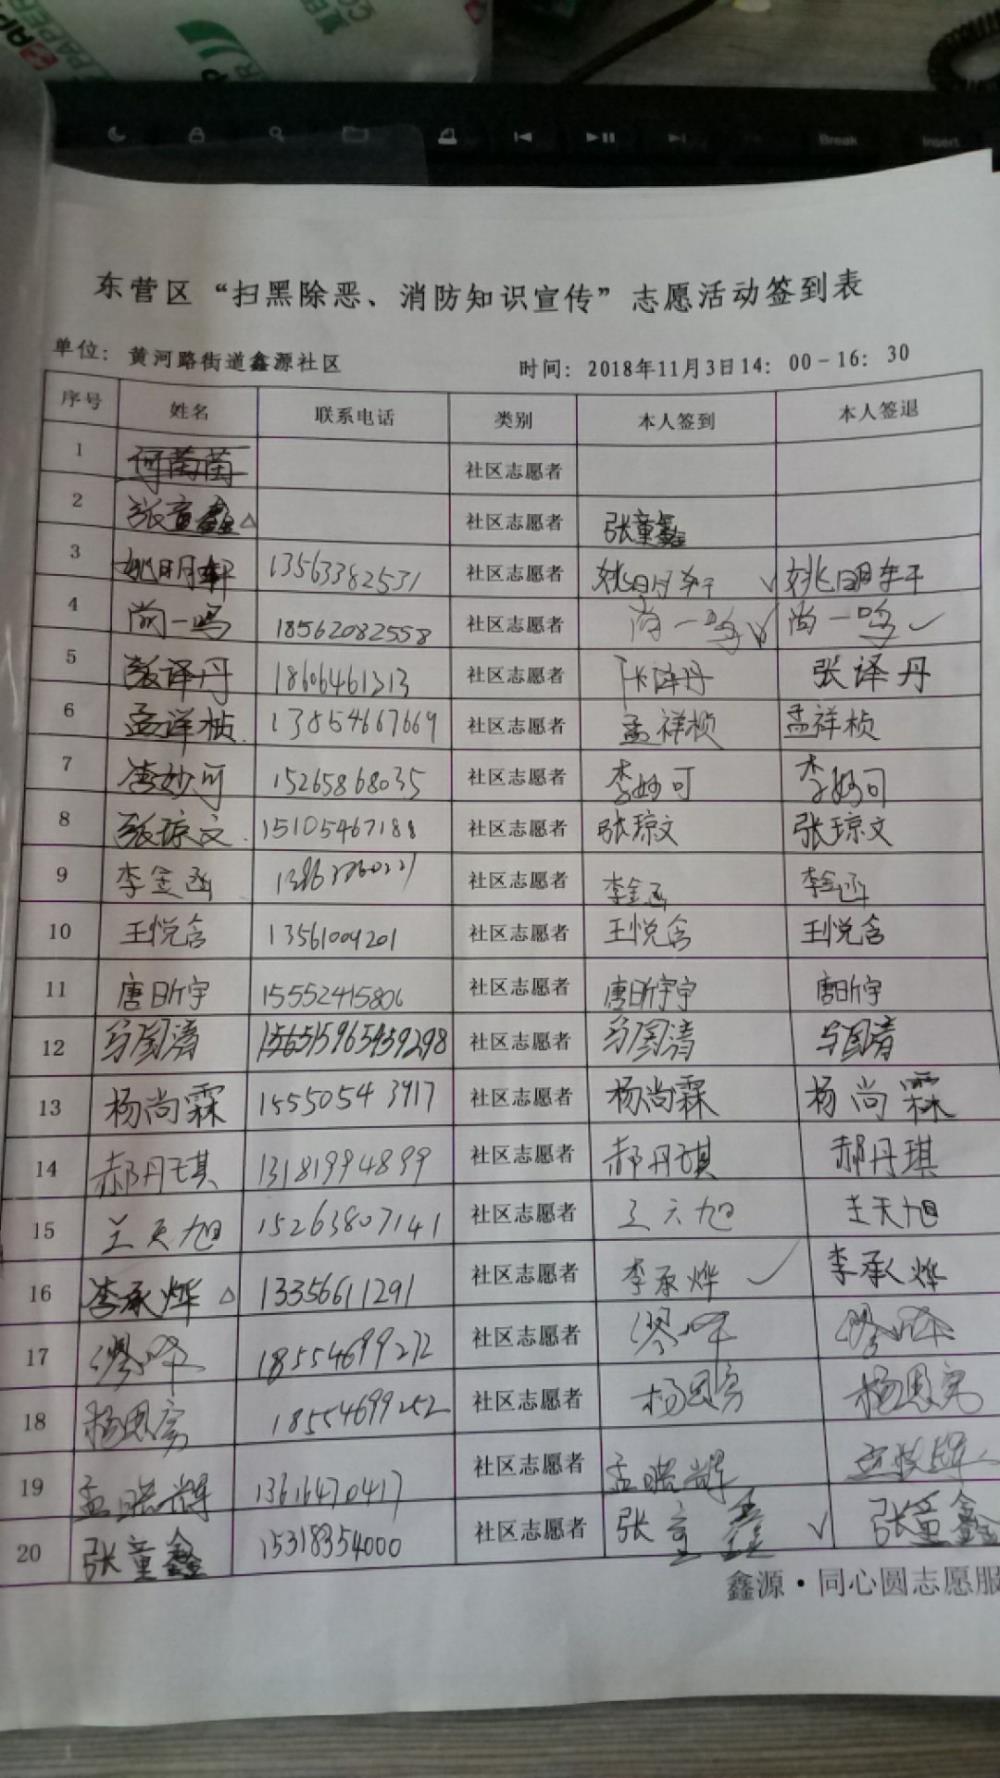 PAPER
Break
Insert
东营区“扫黑除恶、消防知识宣传”志愿活动签到表
单位：黄河路街道鑫源社区 时间：2018年11月3日14：00-16：30
序号 姓名 联系电话 类别 本人签到 本人签退
1 何茵茵 社区志愿者
2 张童鑫△ 社区志愿者 张童鑫
3 姚明轩 13563382531 社区志愿者 姚明轩 ✓ 姚明轩
4 尚一鸣 18562082558 社区志愿者 尚一鸣 ✓ 尚一鸣 ✓
5 张译丹 18606461313 社区志愿者 张译丹 张译丹
6 孟祥桢 13854667669 社区志愿者 孟祥桢 孟祥桢
7 李妙可 15265868035 社区志愿者 李妙可 李妙可
8 张琼文 15105467188 社区志愿者 张琼文 张琼文
9 李金函 社区志愿者 李金函 李金函
10 王悦含 13561009201 社区志愿者 王悦含 王悦含
11 唐昕宇 15552415806 社区志愿者 唐昕宇 唐昕宇
12 马国清 社区志愿者 马国清 马国清
13 杨尚霖 15550543917 社区志愿者 杨尚霖 杨尚霖
14 郝丹琪 13181994899 社区志愿者 郝丹琪 郝丹琪
15 王天旭 15263807141 社区志愿者 王天旭 王天旭
16 李承烨△ 13356611291 社区志愿者 李承烨 ✓ 李承烨
17 18554699272 社区志愿者
18 18554699252 社区志愿者
19 13616470417 社区志愿者
20 张童鑫 15318354000 社区志愿者 张童鑫 ✓ 张童鑫
鑫源·同心圆志愿服